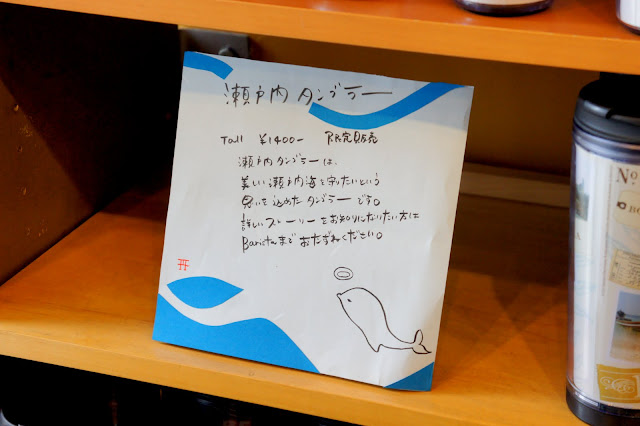 瀬戸内 タンブラー
Tall ¥1400- 限定販売
瀬戸内タンブラーは、
美しい瀬戸内海を守りたいという
思いを込めたタンブラーです。
詳しいストーリーをお知りになりたい方は
Baristaまでおたずねください。
No